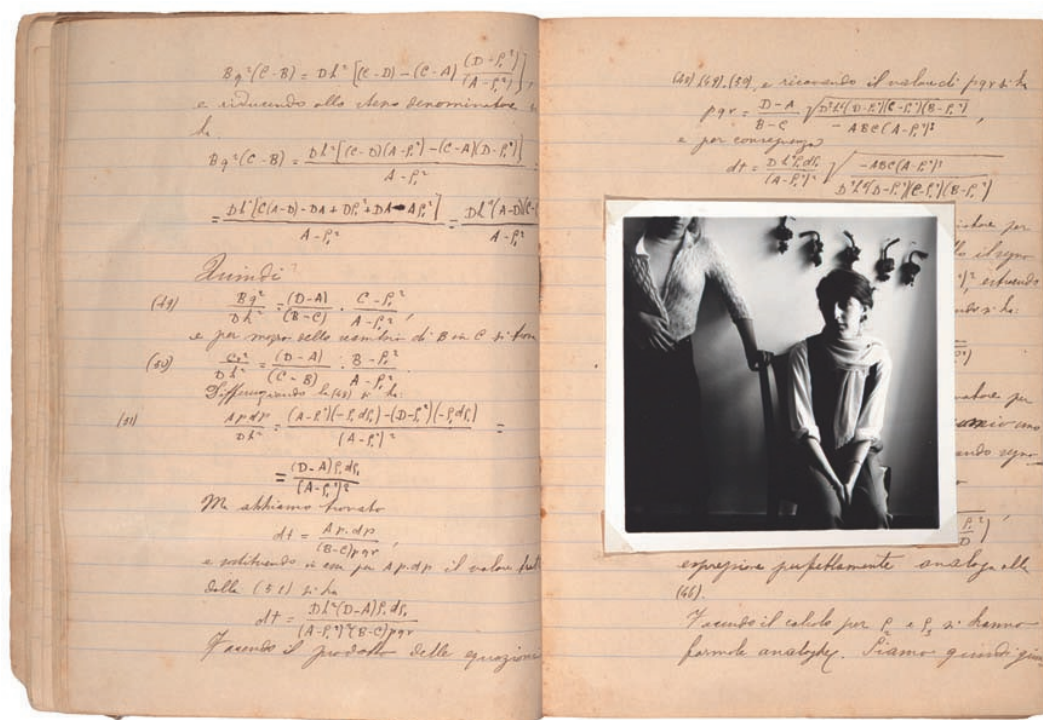 Bq²(C-B) = Dh²[(C-D)-(C-A)(D-ρ₁²)/(A-ρ₁²)],
e riducendo allo stesso denominatore si
ha
Bq²(C-B) = Dh²[(C-D)(A-ρ₁²)-(C-A)(D-ρ₁²)]/(A-ρ₁²) =
= Dh²[C(A-D)-DA+Dρ₁²+DA-Aρ₁²]/(A-ρ₁²) = Dh²(A-D)(C-
A-ρ₁²
Quindi
(49) Bq²/Dh² = (D-A)/(B-C) . (C-ρ₁²)/(A-ρ₁²),
e per mezzo dello scambio di B in C si trova
(50) Cr²/Dh² = (D-A)/(C-B) : (B-ρ₁²)/(A-ρ₁²).
Differenziando la (48) si ha:
(51) Apdp/Dh² = (A-ρ₁²)(-ρ₁dρ₁)-(D-ρ₁²)(-ρ₁dρ₁)/(A-ρ₁²)² =
= (D-A)ρ₁dρ₁/(A-ρ₁²)²
Ma abbiamo trovato
dt = Ap.dp/(B-C)pqr,
e sostituendo in essa per Ap.dp il valore
dalla (51) si ha
dt = Dh²(D-A)ρ₁dρ₁/(A-ρ₁²)²(B-C)pqr
Facendo il prodotto delle equazioni
(48), (49), (50), e ricavando il valore di pqr si ha
pqr = (D-A)/(B-C) √D³h⁶(D-ρ₁²)(C-ρ₁²)(B-ρ₁²)/-ABC(A-ρ₁²)³,
e per conseguenza
dt = Dh²ρ₁dρ₁/(A-ρ₁²)² √-ABC(A-ρ₁²)³/D³h⁶(D-ρ₁²)(C-ρ₁²)(B-ρ₁²)
per
il segno
essendo
si ha:
per
uno
segno
espressione perfettamente analoga alla
(46).
Facendo il calcolo per ρ₂ e ρ₃ si hanno
formole analoghe. Siamo quindi